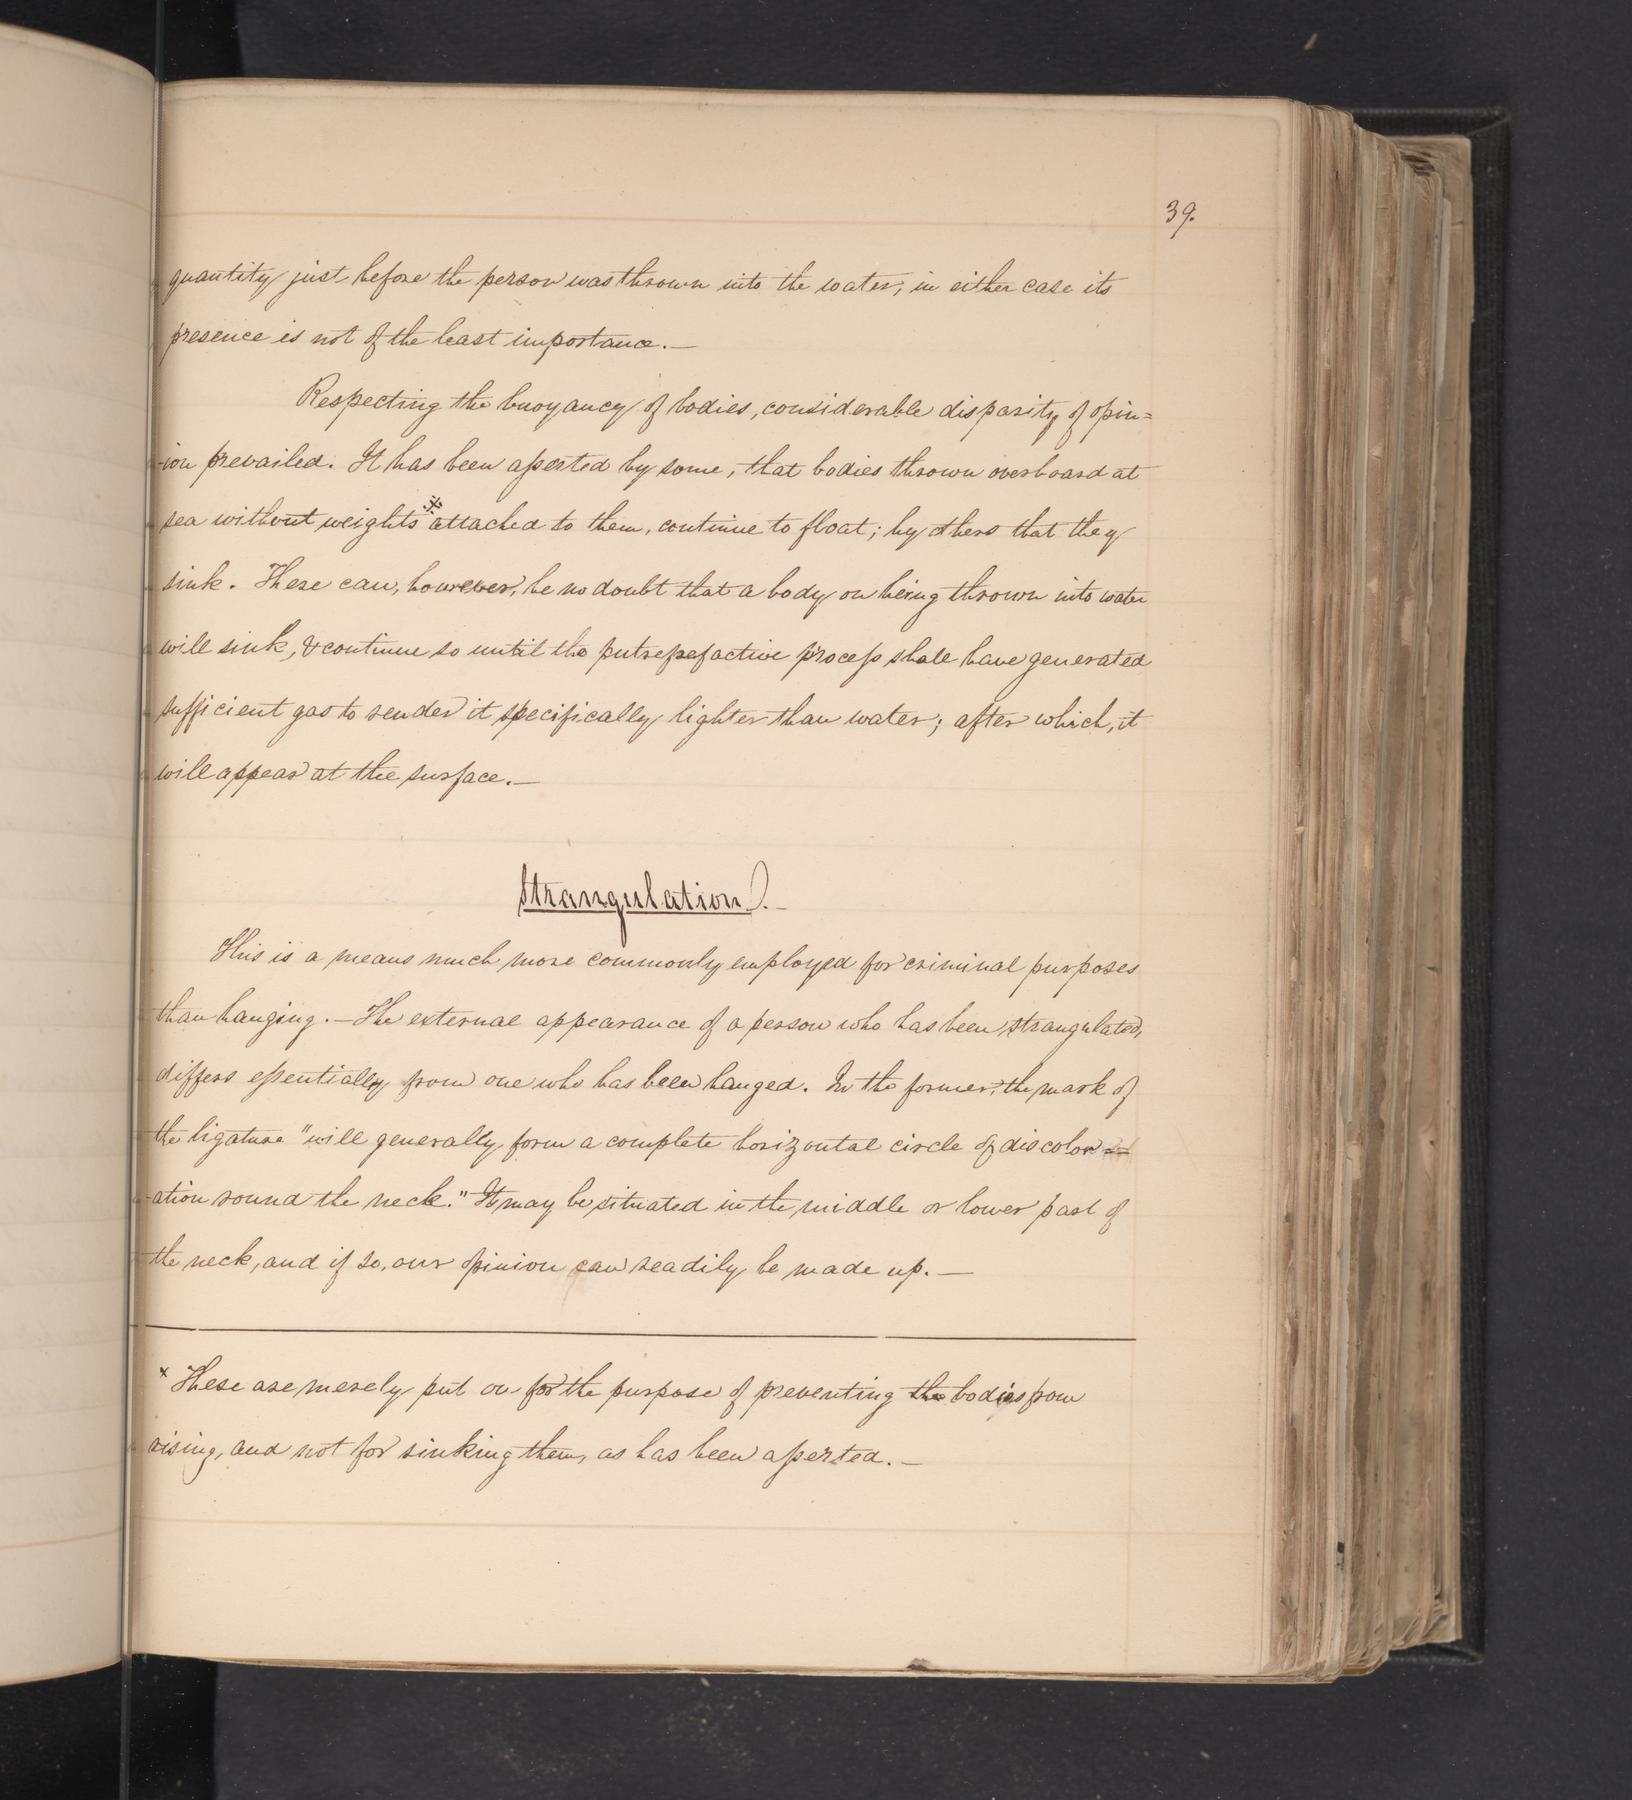 39.
quantity just before the person was thrown into the water; in either case its
presence is not of the least importance.—
Respecting the buoyancy of bodies, considerable disparity of opin=
-ion prevailed. It has been asserted by some, that bodies thrown overboard at
sea without weights * attached to them, continue to float; by others that they
sink. There can, however, be no doubt that a body on being thrown into water
will sink, & continue so until the putrefactive process shall have generated
sufficient gas to render it specifically lighter than water; after which, it
will appear at the surface.—
Strangulation.—
This is a means much more commonly employed for criminal purposes
than hanging.—The external appearance of a person who has been strangulated,
differs essentially from one who has been hanged. In the former, the mark of
the ligature "will generally form a complete horizontal circle of discolor=
-ation round the neck." It may be situated in the middle or lower part of
the neck, and if so, our opinion can readily be made up.—
* These are merely put on for the purpose of preventing the bodies from
rising, and not for sinking them, as has been asserted.—